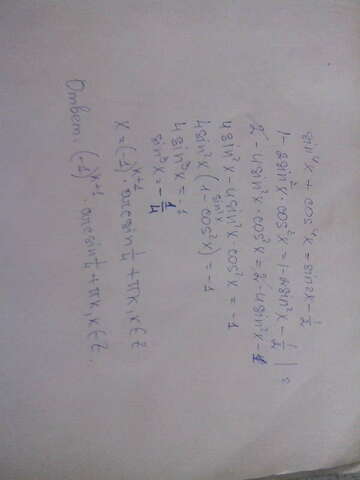 sin⁴x + cos⁴x = sin2x - 1/2
1 - 2sin²x · cos²x = 1 - 2sin²x - 1/2 | 2
2 - 4sin²x · cos²x = 2 - 4sin²x - 1
4sin²x - 4sin²x · cos²x = -1
4sin²x (1 - cos²x) = -1
sin²x
4sin⁴x = -1
sin⁴x = -1/4
x = (-1)ᵏ⁺¹ · arcsin 1/4 + πk, k ∈ Z
Ответ: (-1)ᵏ⁺¹ · arcsin 1/4 + πk, k ∈ Z.